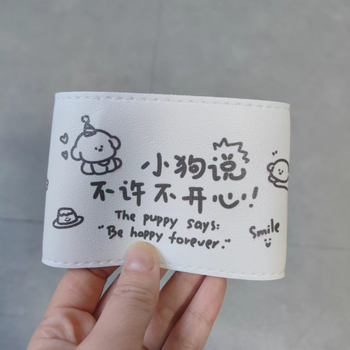 小狗说
不许不开心!!
The puppy says:
"Be happy forever."
Smile